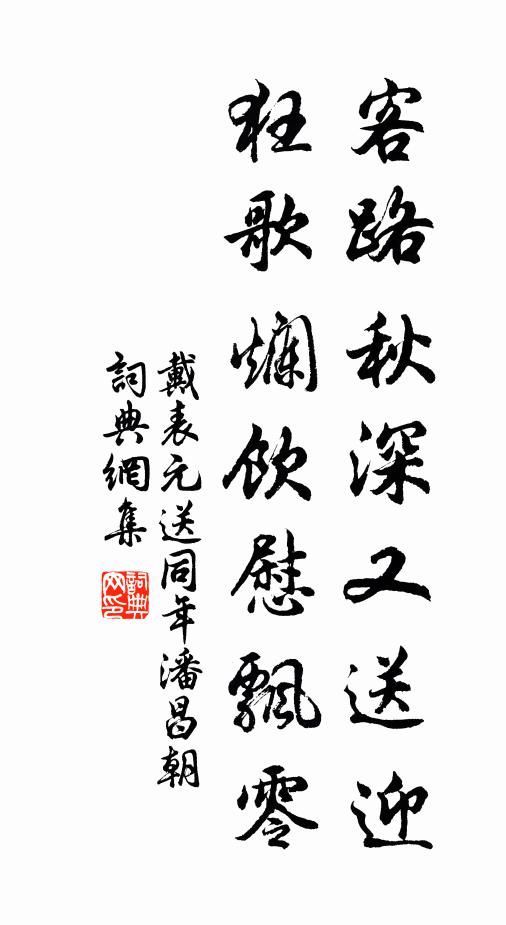 客路秋深又送迎
狂歌爛飲慰飄零
戴表元送同年潘昌朝
詞典網集
詞典網印